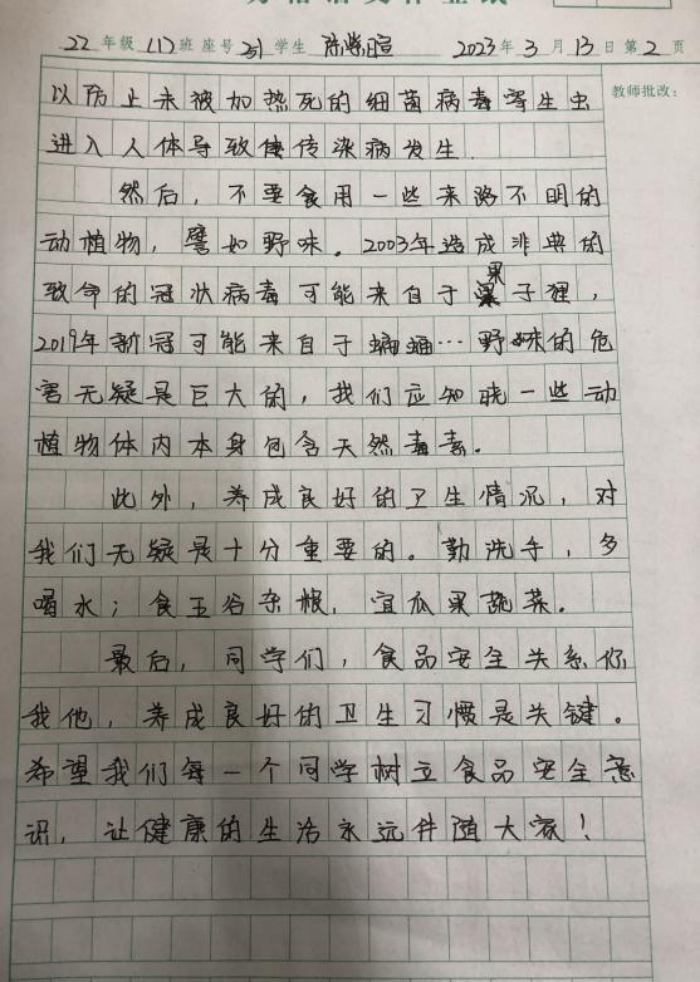 22年级(1)班 座号 学生 2023年3月13日 第2页
教师批改：
以防止未被加热死的细菌病毒寄生虫
进入人体导致使传染病发生.
然后，不要食用一些来路不明的
动植物，譬如野味。2003年造成非典的
致命的冠状病毒可能来自于果子狸，
2019年新冠可能来自于蝙蝠…野味的危
害无疑是巨大的，我们应知晓一些动
植物体内本身包含天然毒素。
此外，养成良好的卫生情况，对
我们无疑是十分重要的。勤洗手，多
喝水；食五谷杂粮，宜瓜果蔬菜。
最后，同学们，食品安全关系你
我他，养成良好的卫生习惯是关键。
希望我们每一个同学树立食品安全意
识，让健康的生活永远伴随大家！